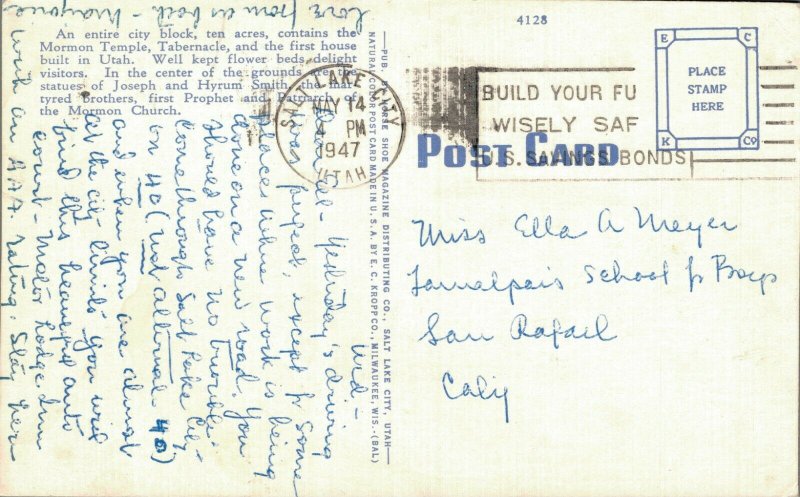 An entire city block, ten acres, contains the
Mormon Temple, Tabernacle, and the first house
built in Utah. Well kept flower beds delight
visitors. In the center of the grounds are the
statues of Joseph and Hyrum Smith the mar-
tyred brothers, first Prophet and Patriarch of
the Mormon Church.
4128
PLACE
STAMP
HERE
E C
K Co
SALT LAKE CITY
MAY 14
4 PM
1947
UTAH
BUILD YOUR FU
WISELY SAF
U.S. SAVINGS BONDS
POST CARD
—PUB. BY HORSE SHOE MAGAZINE DISTRIBUTING CO., SALT LAKE CITY, UTAH—
NATURAL COLOR POST CARD MADE IN U. S. A. BY E. C. KROPP CO., MILWAUKEE, WIS.-(BAL)
Wed -
Yesterday's driving
was except for some
places where work is being
done on a new road. You
should have no trouble.
Come through Salt Lake City
on 40 (not alternate 40)
and when you are almost
at the city limits you will
find this heavenly auto
court - Motor Lodge Inn
with an AAA rating. Stay here
Love from us both - Marjorie
Miss Ella A Meyer
Tamalpais School for Boys
San Rafael
Calif